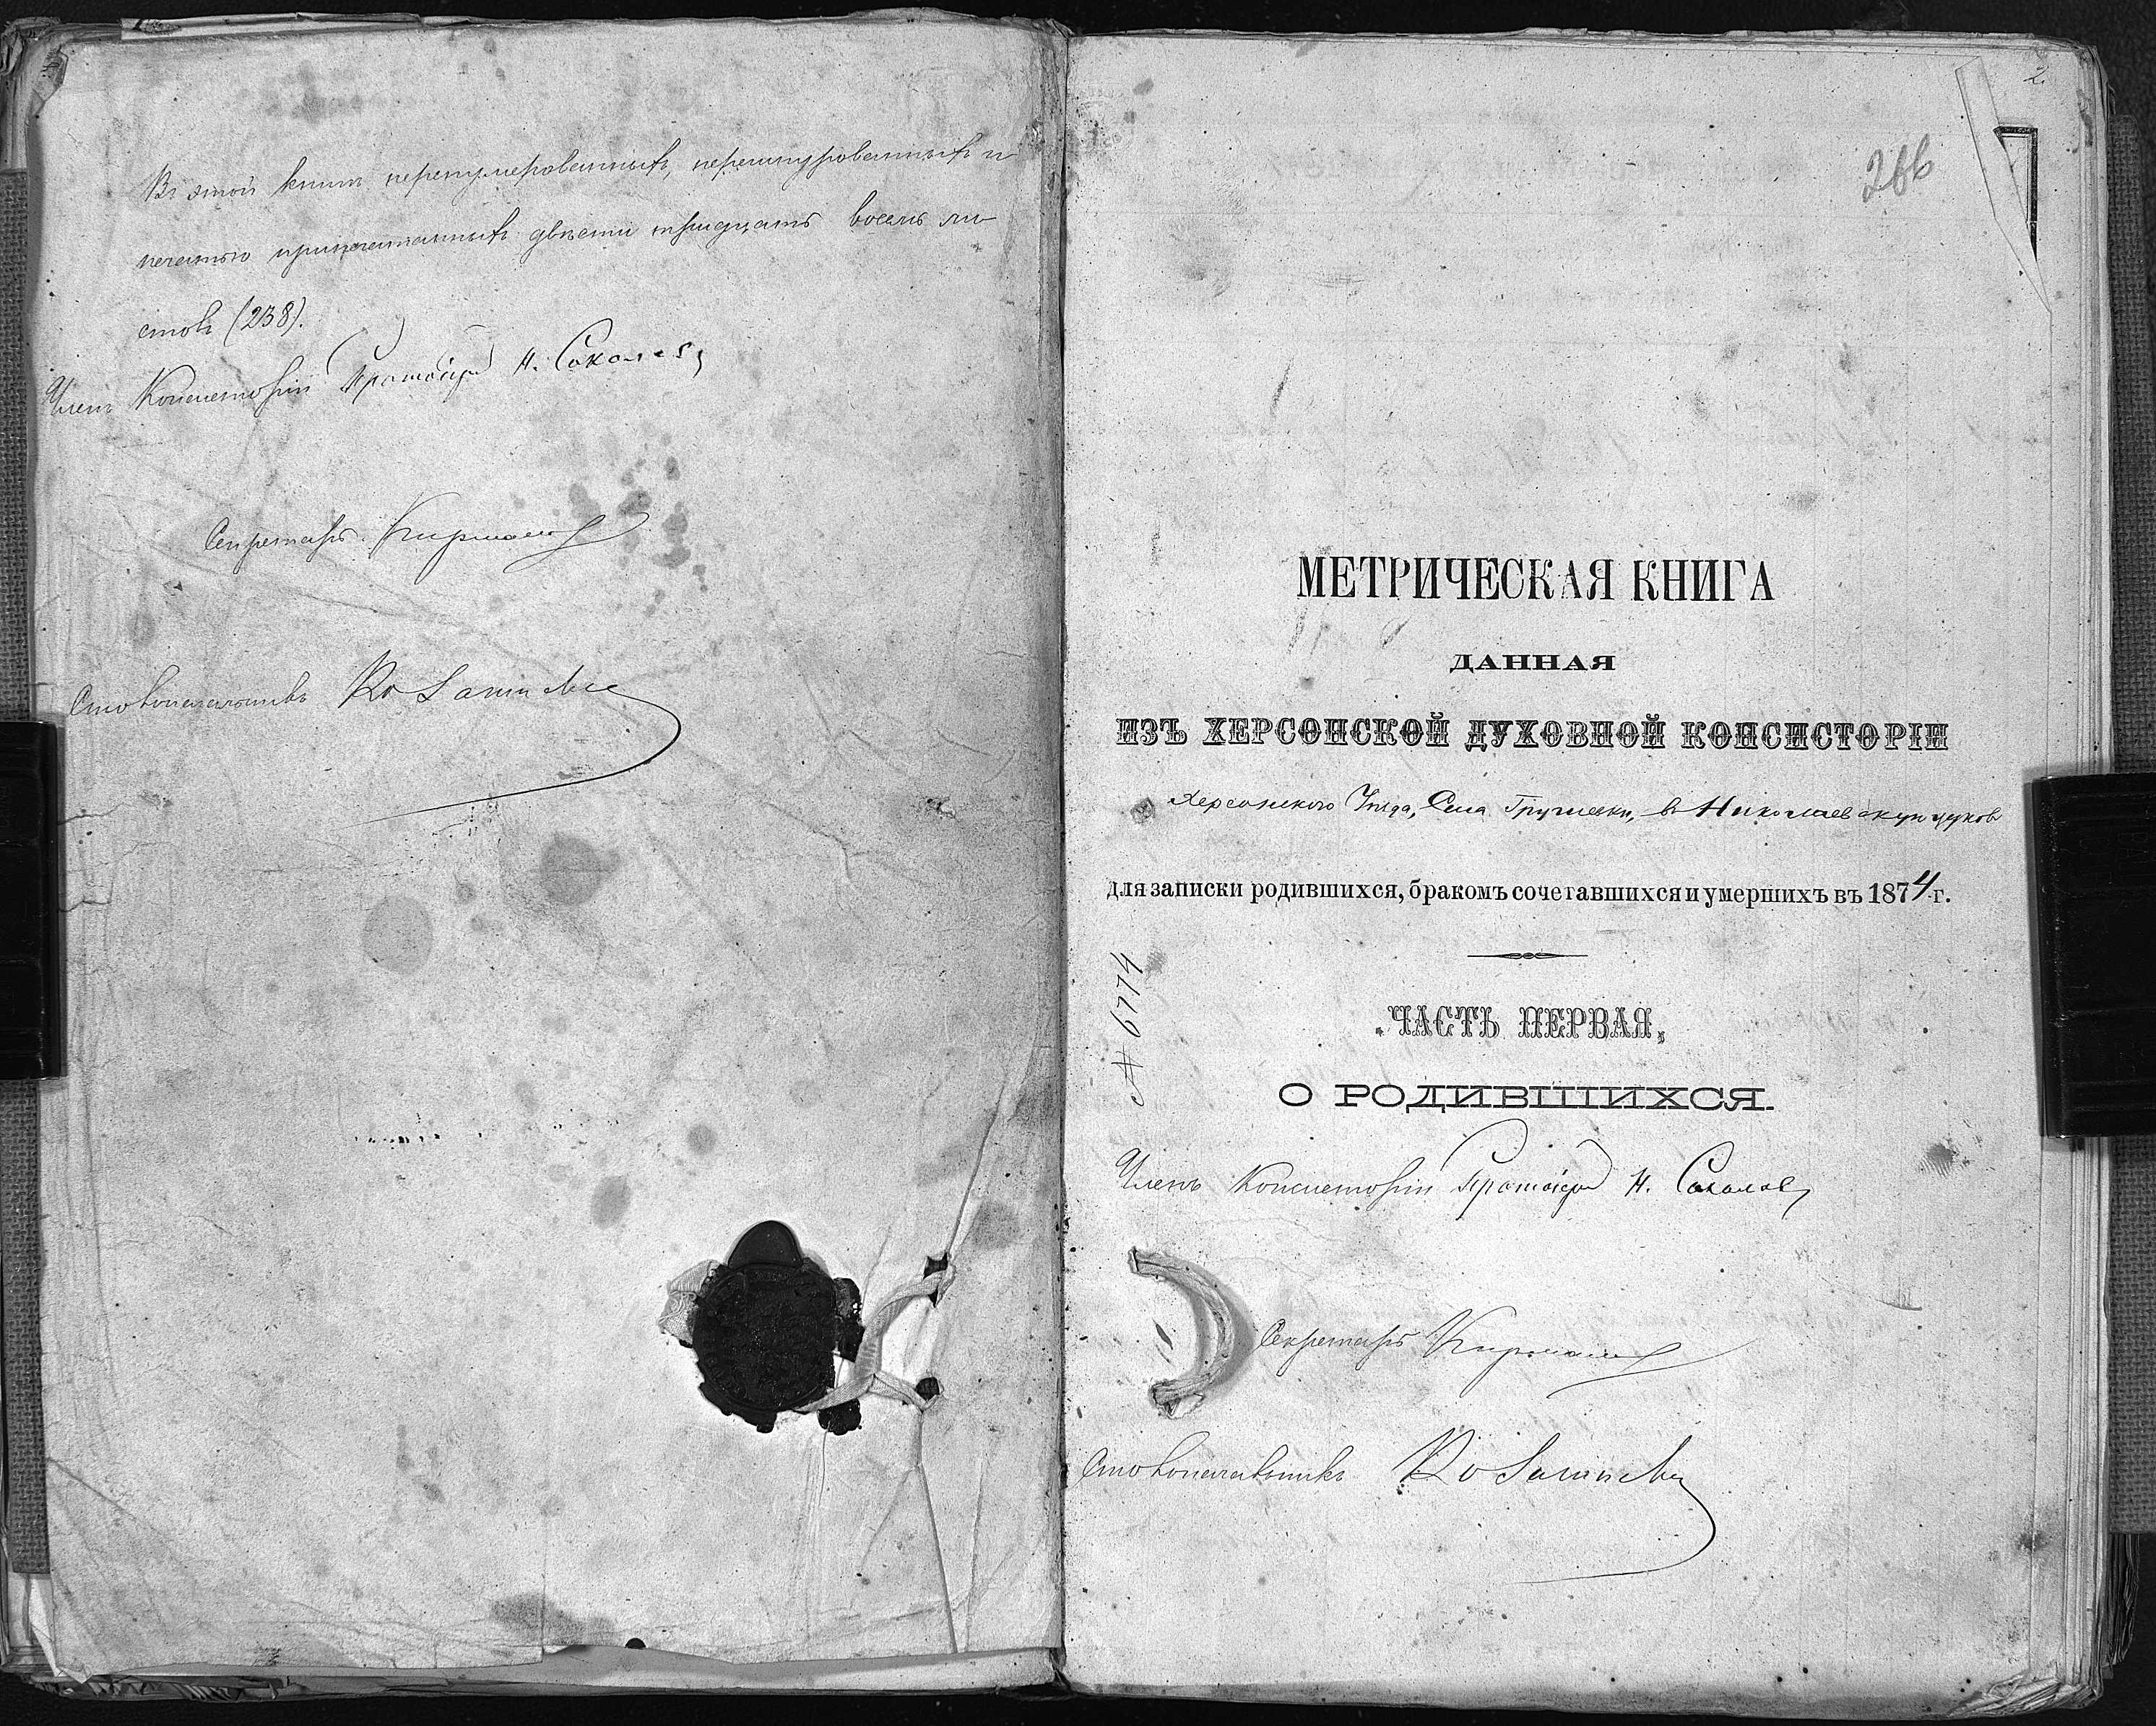 Въ этой книгѣ перенумерованныхъ, перешнурованныхъ и
печатью припечатанныхъ двѣсти тридцать восемь ли-
стовъ (238).
Членъ Консисторіи Протоіерей Н. Соколовъ
Секретарь
Столоначальникъ
2.
266
МЕТРИЧЕСКАЯ КНИГА
ДАННАЯ
ИЗЪ ХЕРСОНСКОЙ ДУХОВНОЙ КОНСИСТОРІИ
Херсонскаго Уѣзда, Села Грушевки, въ Николаевскую церковь
для записки родившихся, бракомъ сочетавшихся и умершихъ въ 1874 г.
№ 6774
ЧАСТЬ ПЕРВАЯ,
О РОДИВШИХСЯ.
Членъ Консисторіи Протоіерей Н. Соколовъ
Секретарь
Столоначальникъ